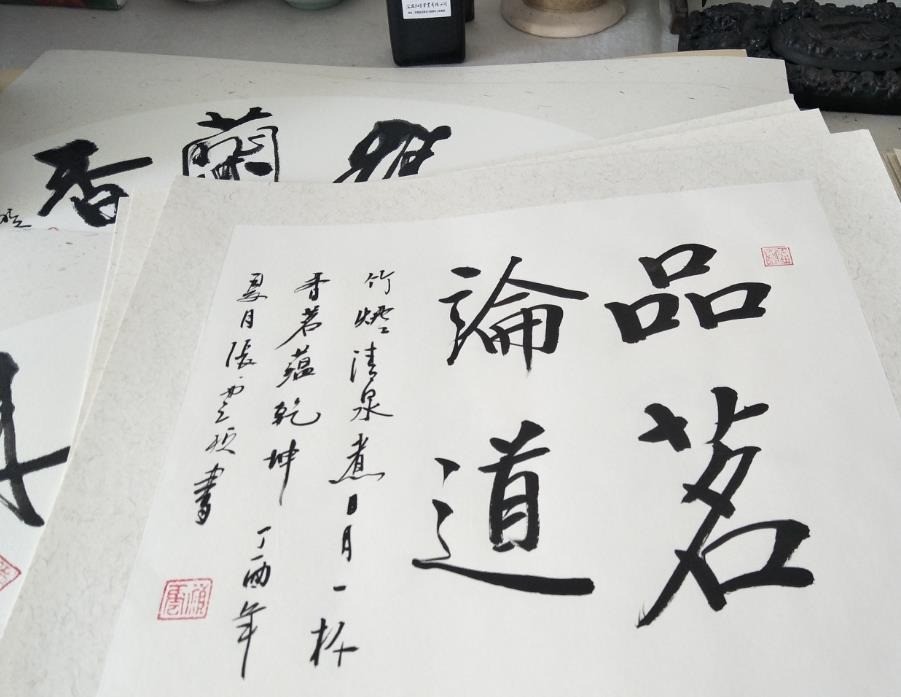 品茗
論道
竹爐清泉煮日月一杯
香茗蘊乾坤 丁酉年
夏月張雲碩書
蘭
香